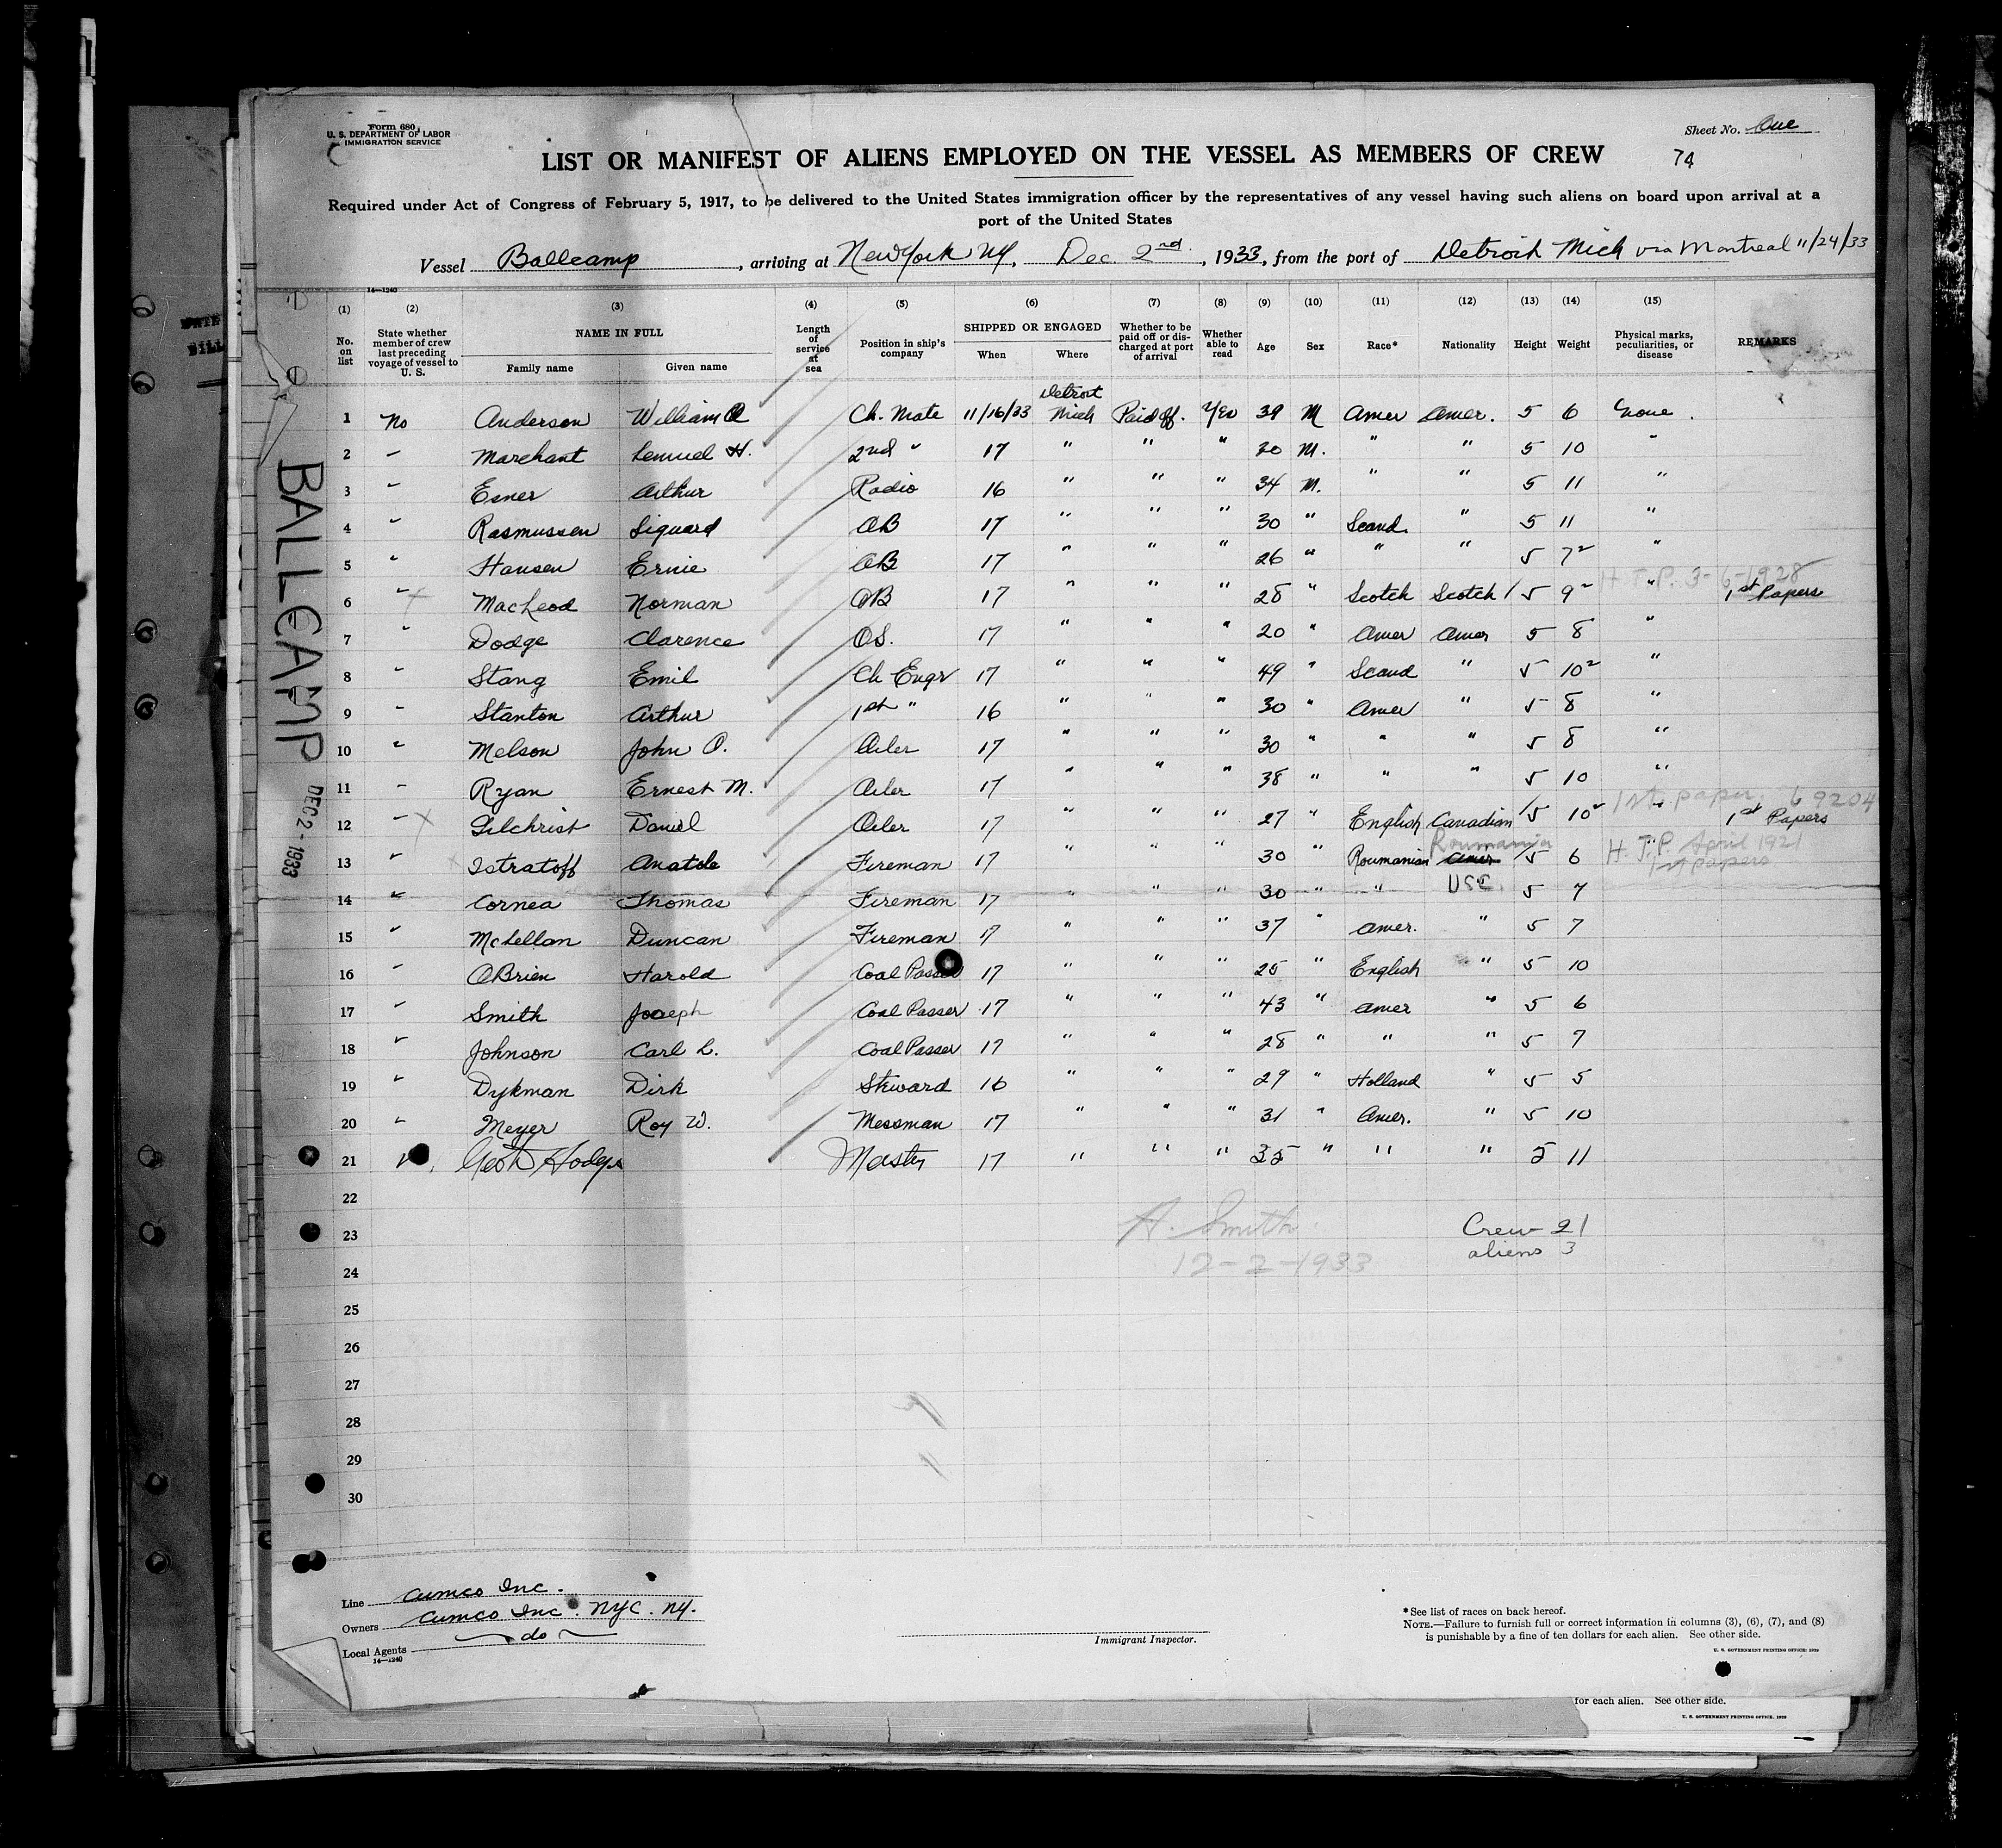 Form 680
U. S. DEPARTMENT OF LABOR
IMMIGRATION SERVICE
Sheet No. One
74
LIST OR MANIFEST OF ALIENS EMPLOYED ON THE VESSEL AS MEMBERS OF CREW
Required under Act of Congress of February 5, 1917, to be delivered to the United States immigration officer by the representatives of any vessel having such aliens on board upon arrival at a
port of the United States
Vessel Ballcamp, arriving at New York NY, Dec 2nd, 1933, from the port of Detroit Mich via Montreal 11/24/33
14—1240
(1) (2) (3) (4) (5) (6) (7) (8) (9) (10) (11) (12) (13) (14) (15)
No. on list State whether member of crew last preceding voyage of vessel to U. S. NAME IN FULL Family name Given name Length of service at sea Position in ship's company SHIPPED OR ENGAGED When Where Whether to be paid off or discharged at port of arrival Whether able to read Age Sex Race* Nationality Height Weight Physical marks, peculiarities, or disease REMARKS
1 No Anderson William Ch. Mate 11/16/33 Detroit Mich Paid off. Yes 39 M Amer Amer. 5 6 None.
2 " Marchant Lemuel H. 2nd " 17 " " " 30 M. " " 5 10 "
3 " Esner Arthur Radio 16 " " " 34 M. " " 5 11 "
4 " Rasmussen Siguard AB 17 " " " 30 " Scand. " 5 11 "
5 " Hansen Ernie AB 17 " " " 26 " " " 5 7½ "
H.T.P. 3-6-1928
6 " MacLeod Norman AB 17 " " " 28 " Scotch Scotch 5 9½ " 1st Papers
7 " Dodge Clarence OS. 17 " " " 20 " Amer Amer 5 8 "
8 " Stang Emil Ch Engr 17 " " " 49 " Scand " 5 10½ "
9 " Stanton Arthur 1st " 16 " " " 30 " Amer " 5 8 "
10 " Melson John O. Oiler 17 " " " 30 " " " 5 8 "
11 " Ryan Ernest M. Oiler 17 " " " 38 " " " 5 10 "
1st paper. 69204
12 " Gilchrist Daniel Oiler 17 " " " 27 " English Canadian 5 10½ " 1st Papers
Roumania H.T.P. April 1921
13 " Istratoff Anatole Fireman 17 " " " 30 " Roumanian Amer 5 6 1st papers
14 " Cornea Thomas Fireman 17 " " " 30 " " USC. 5 7
15 " McLellan Duncan Fireman 17 " " " 37 " Amer. " 5 7
16 " OBrien Harold Coal Passer 17 " " " 25 " English " 5 10
17 " Smith Joseph Coal Passer 17 " " " 43 " Amer " 5 6
18 " Johnson Carl L. Coal Passer 17 " " " 28 " " " 5 7
19 " Dykman Dirk Steward 16 " " " 29 " Holland " 5 5
20 " Meyer Roy W. Messman 17 " " " 31 " Amer. " 5 10
21 " Hodges Master 17 " " " 35 " " " 5 11
22
23
24
25
26
27
28
29
30
A. Smith
12-2-1933
Crew 21
aliens 3
BALLCAMP
DEC 2 - 1933
Line Cumco Inc.
Owners Cumco Inc. NYC. NY.
Local Agents do
14—1240
Immigrant Inspector.
*See list of races on back hereof.
NOTE.—Failure to furnish full or correct information in columns (3), (6), (7), and (8)
is punishable by a fine of ten dollars for each alien. See other side.
U. S. GOVERNMENT PRINTING OFFICE:
for each alien. See other side.
U. S. GOVERNMENT PRINTING OFFICE.